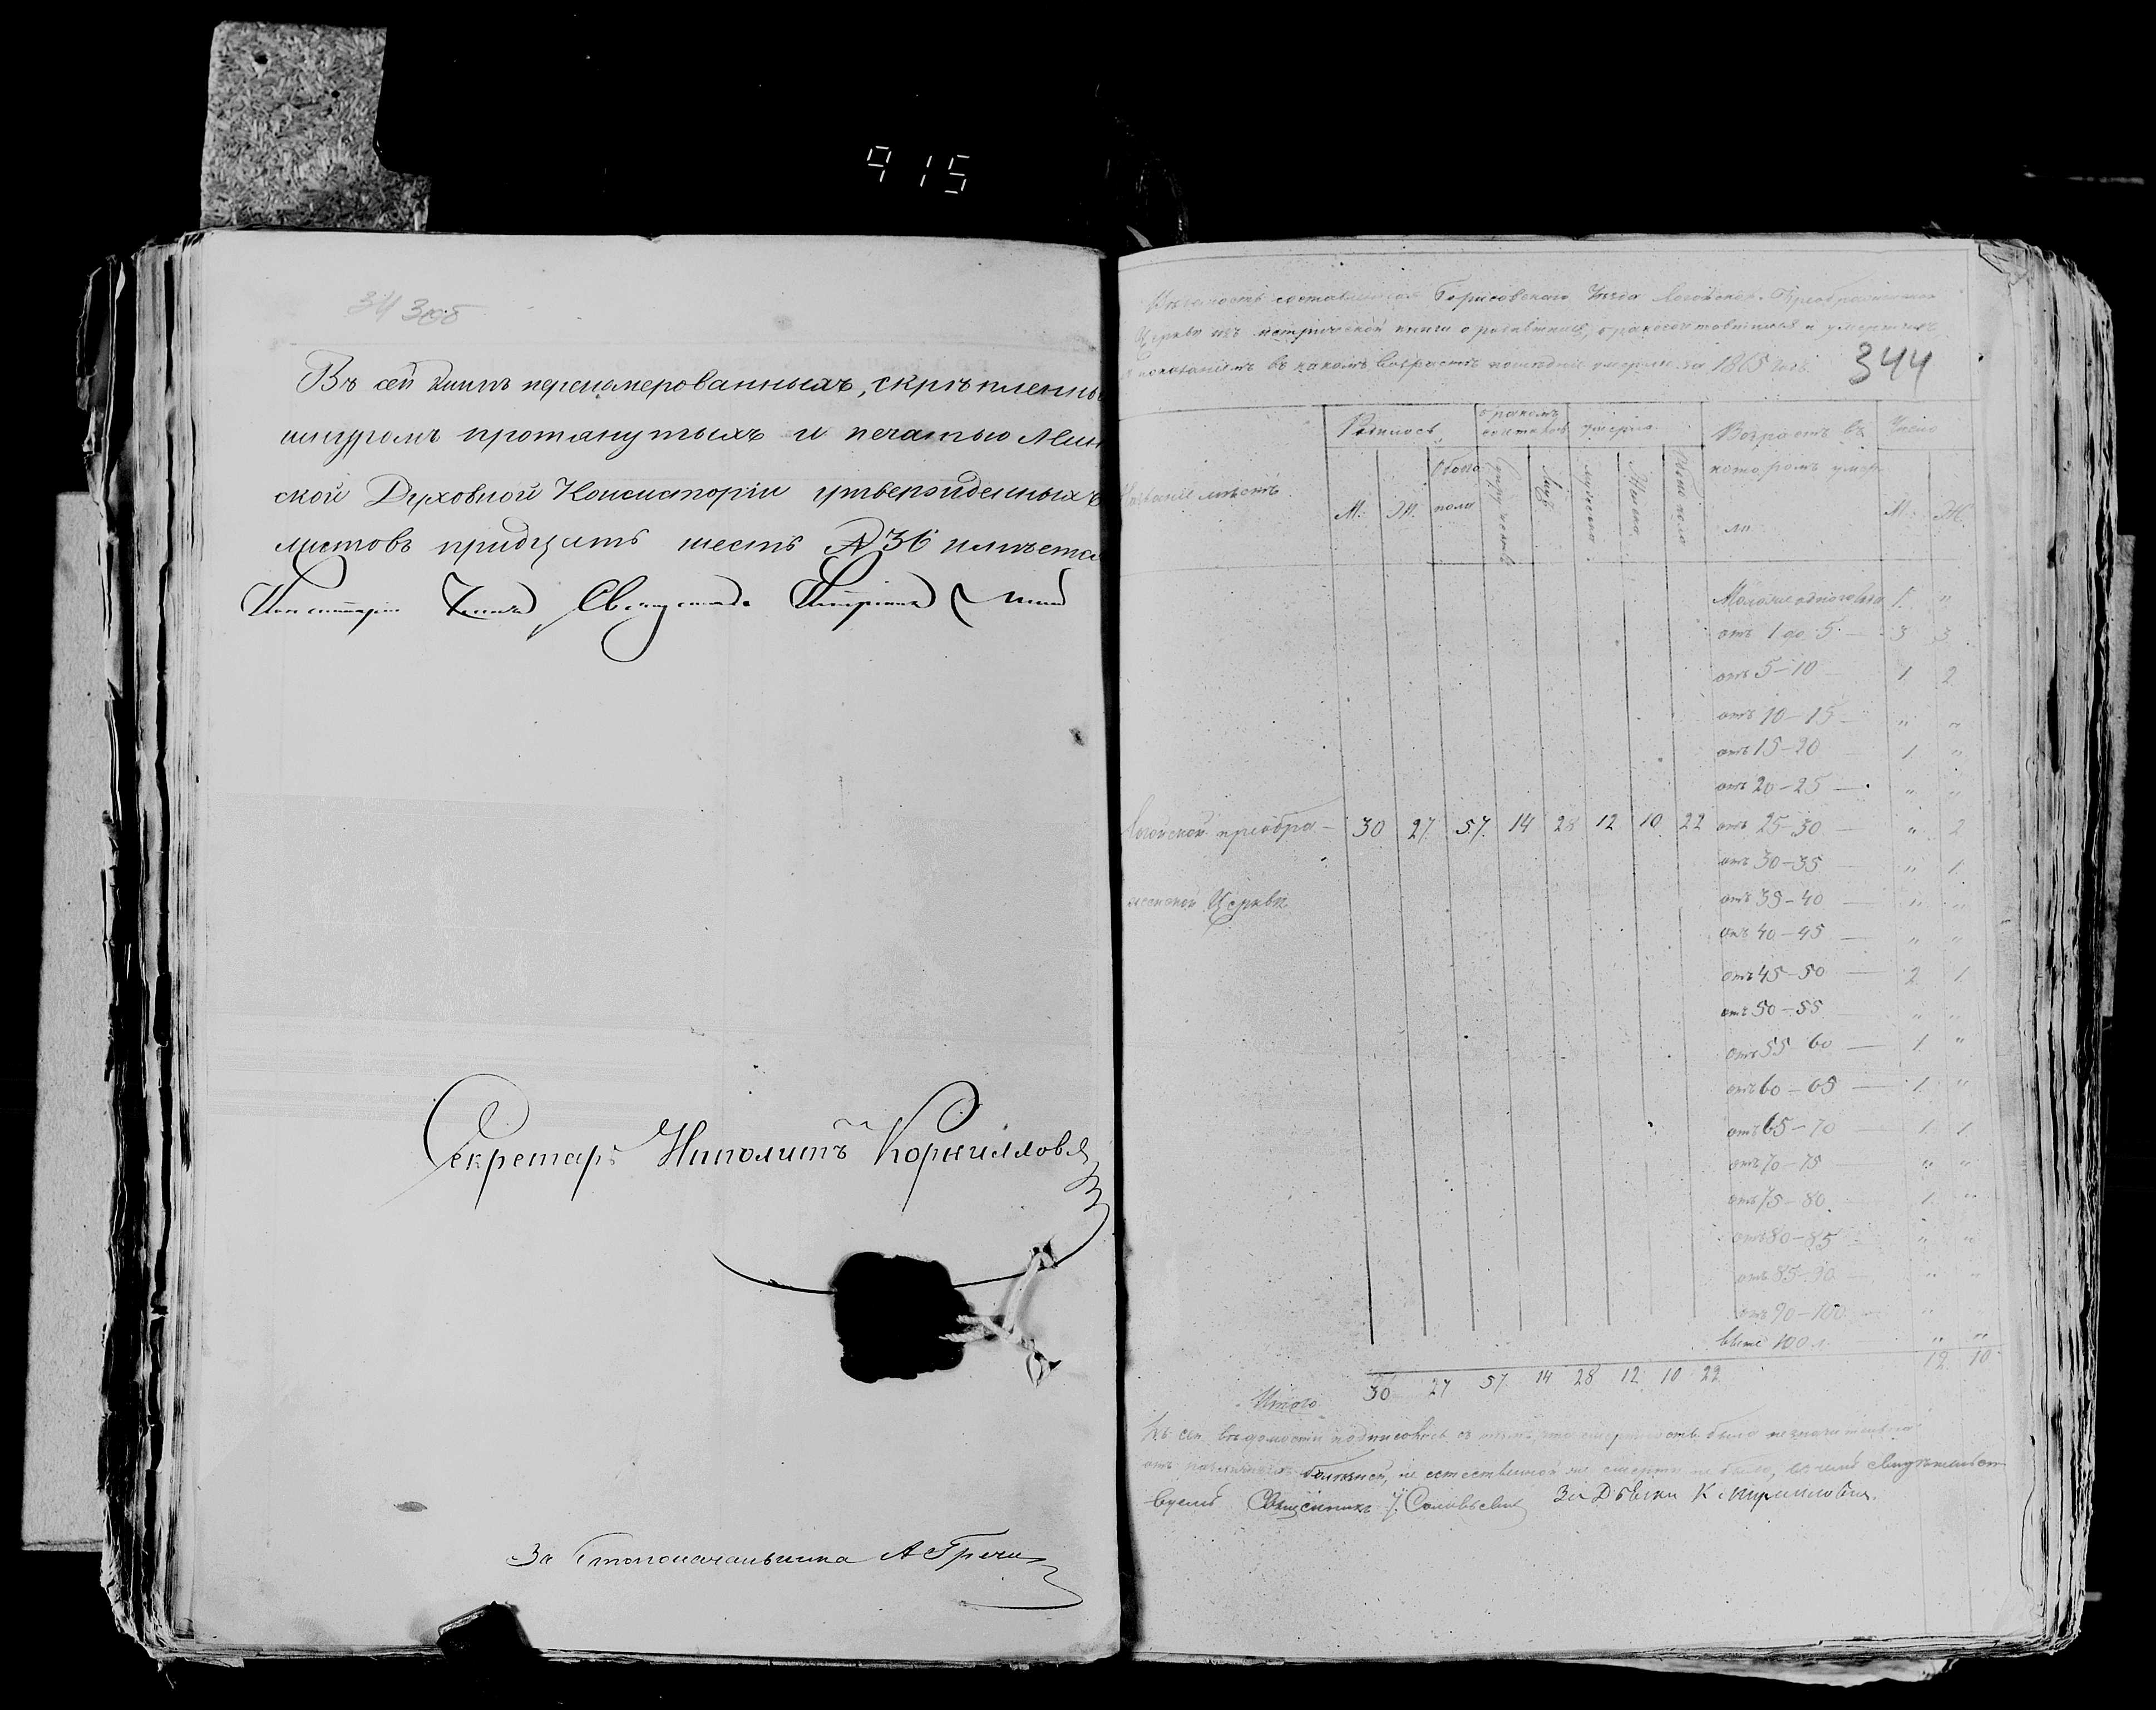 915
343об
Въ сей книгѣ перенумерованныхъ, скрѣпленны
шнуромъ протянутыхъ и печатью Мин
ской Духовной Консисторіи утвержденныхъ
листовъ тридцать шесть № 36 имѣетс
Консисторіи Членъ Священникъ
Секретарь Иполитъ Корнилловъ
За Столоначальника А Гречи
Вѣдомость составленная Борисовскаго Уѣзда Логойской Преображенской
Церкви изъ метрической книги о родившихся, бракосочетавшихся и умершихъ
съ показаніемъ въ какомъ возрастѣ послѣдніе умерли за 1865 годъ.
344
Названіе мѣстъ Родилось бракомъ сочетавш. умерло Возрастъ въ которомъ умер- ли Число
М. Ж. Обоего пола Супружествъ Лицъ мужеска Женска Обоего пола М. Ж.
Моложе одного года 1 "
отъ 1 до 5 — 3 3
отъ 5–10 — 1 2
отъ 10–15 — " "
отъ 15–20 — 1 "
отъ 20–25 — " "
Логойской преобра- 30 27 57 14 28 12 10 22 отъ 25–30 — " 2
отъ 30–35 — " 1
женской Церкви отъ 35–40 — " "
отъ 40–45 — " "
отъ 45–50 — 2 1
отъ 50–55 — " "
отъ 55–60 — 1 "
отъ 60–65 — 1 "
отъ 65–70 — 1 1
отъ 70–75 — " "
отъ 75–80 — 1 "
отъ 80–85 — " "
отъ 85–90 — " "
отъ 90–100 — " "
выше 100 л. " "
Итого 30 27 57 14 28 12 10 22 12 10
Къ сей вѣдомости подписуюсь съ тѣмъ, что смертность была незначительна
отъ болѣзней, не естественной же смерти не было, въ чемъ свидѣтельст-
вуемъ Священникъ І. Соловьевичъ За Дьячка